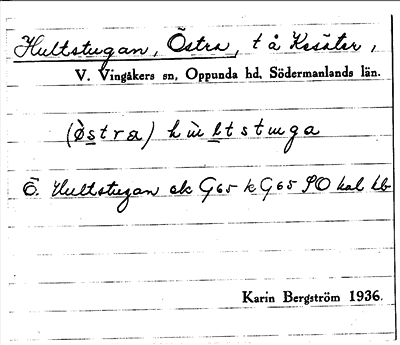 Hultstugan, Östra, t å Kesäter,
V. Vingåkers sn, Oppunda hd, Södermanlands län.
(östra) hùltstuga
Ö. Hultstugan ek G65 k G65 PO hal Lb
Karin Bergström 1936.